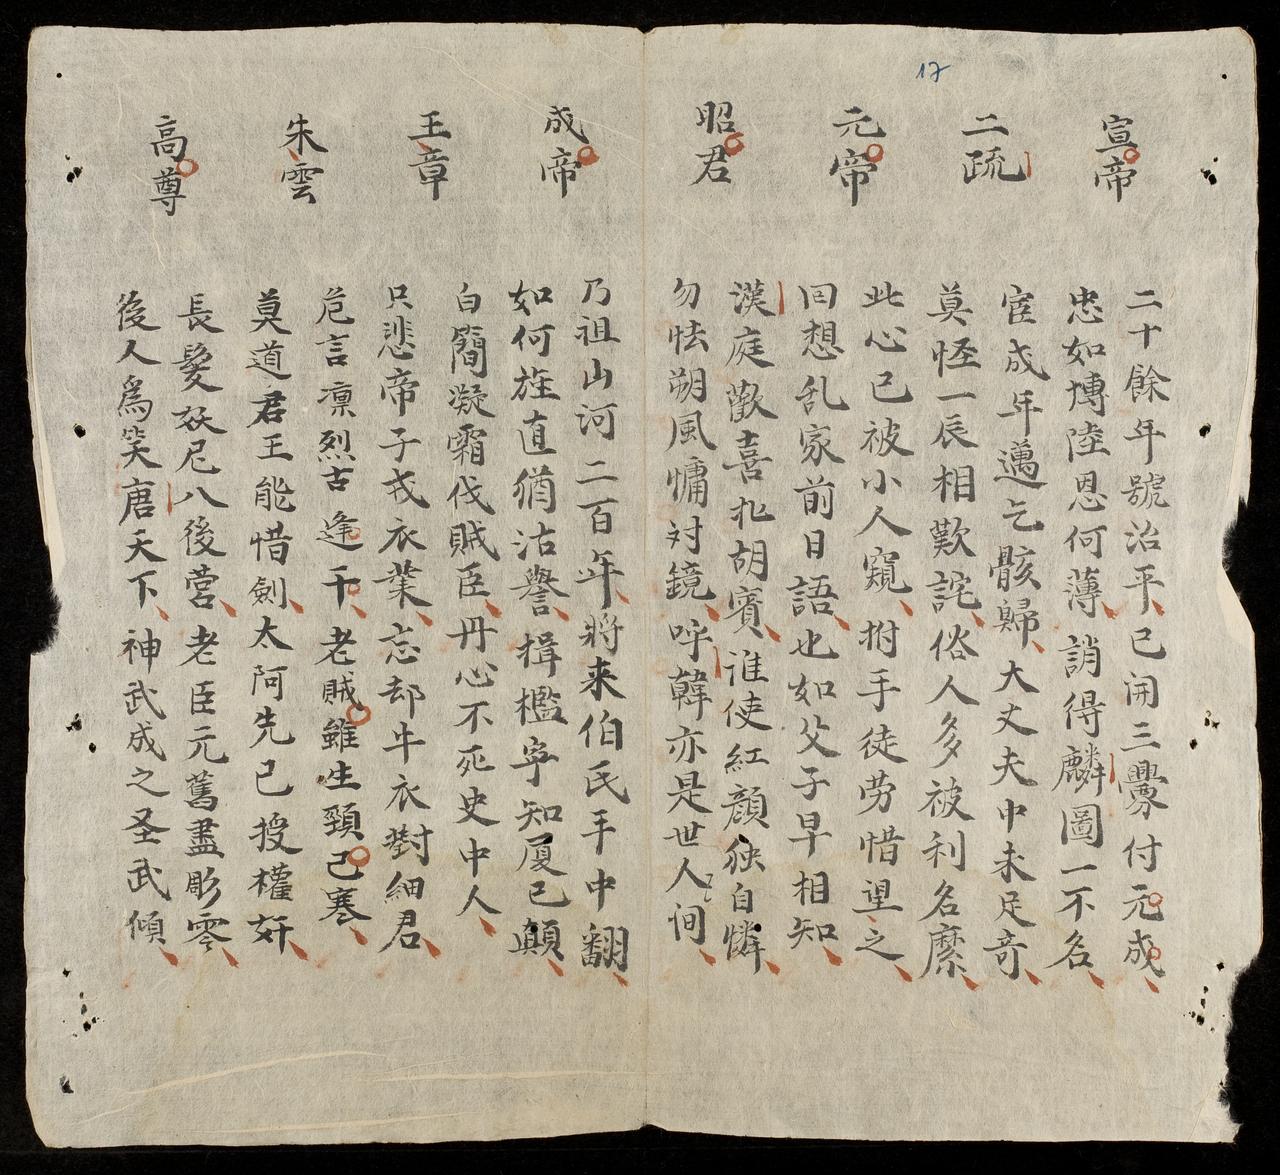 17
宣帝
二十餘年號治平已開三釁付元成
忠如博陸恩何薄誚得麟圖一不名
二疏
宦成年邁乞骸歸大丈夫中未足奇
莫怪一辰相歎詫俗人多被利名縻
元帝
此心已被小人窺拊手徒劳惜望之
回想乱家前日語也如父子早相知
昭君
漢庭歡喜礼胡賓谁使紅顔独自憐
勿怯朔風慵対鏡呼韓亦是世人间
成帝
乃祖山河二百年將来伯氏手中翻
如何旌直猶沽譽揖檻寧知厦已顛
王章
白簡凝霜伐贼臣丹心不死史中人
只悲帝子戎衣業忘却牛衣對細君
朱雲
危言凛烈古逢干老贼雖生頸已寒
莫道君王能惜劍太阿先已授權奸
高尊
長髮妖尼八後营老臣元舊盡彫零
後人為笑唐天下神武成之圣武傾